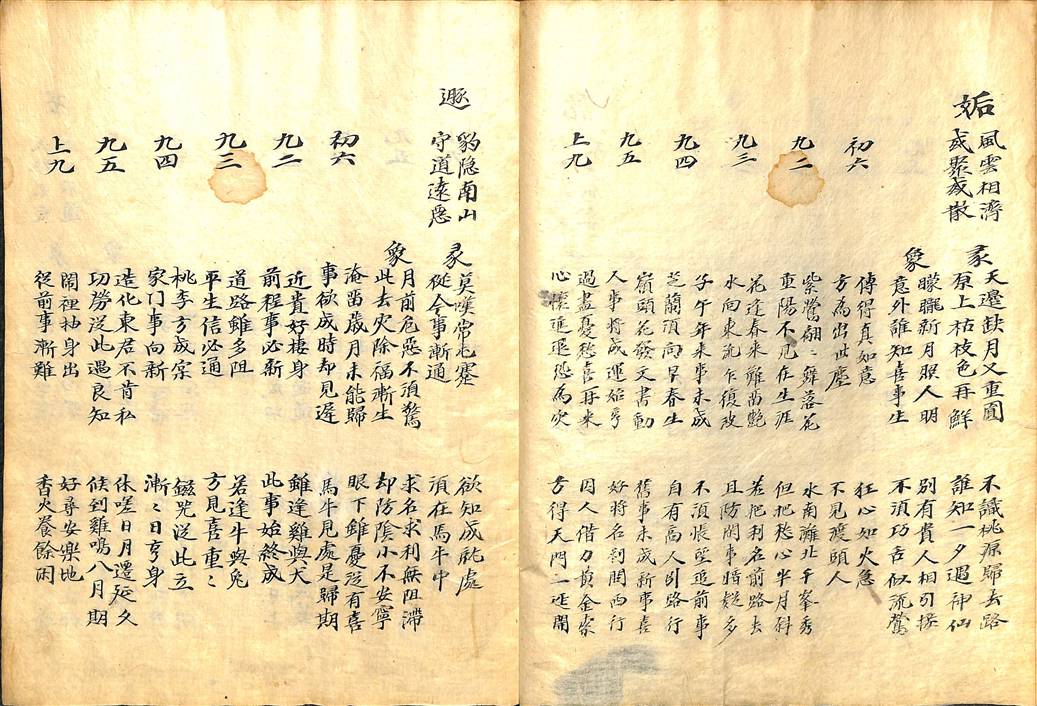 姤
風雲相濟
或聚或散
彖
天邊缺月又重圓
原上枯枝色再鮮
不識桃源歸去路
誰知一夕遇神仙
象
矇朧新月照人明
意外誰知喜事生
別有貴人相引接
不須巧舌似流鶯
初六
傳得真如意
方為出世塵
狂心如火急
不見渡頭人
九二
紫鶯翩〻舞落花
重陽不見在生涯
水南灘北千峯秀
但把愁心半月斜
九三
花逢春來難留艷
水向東流乍復改
若把利名前路去
且防閑事惜疑多
九四
子午年來事未成
芝蘭須向早春生
不須悵望追前事
自有高人引路行
九五
嶺頭花發文書動
人事將成運始亨
舊事未成新事喜
好將名利関西行
上九
過盡憂愁喜再來
心懷進退恐為灾
因人借力黃金寀
方得天門一逕開
遯
豹隐南山
守道遠惡
彖
莫嘆常屯蹇
從今事漸通
欲知成就處
須在馬牛中
象
月前危惡不須驚
此去灾除福漸生
求名求利無阻滯
却防陰小不安寧
初六
淹留歲月未能歸
事欲成時却見遅
眼下雖憂沒有喜
馬牛見處是歸期
九二
近貴好棲身
前程事必新
雖逢雞與犬
此事始終成
九三
道路雖多阻
平生信必通
若逢牛與兔
方見喜重〻
九四
桃李方成寀
家门事向新
鎡兕從此立
漸〻日亨身
九五
造化東君不肯私
功勞從此遇良知
休嗟日月遷延久
候到雞鳴八月期
上九
閙裡抽身出
從前事漸難
好尋安樂地
香火養餘閑